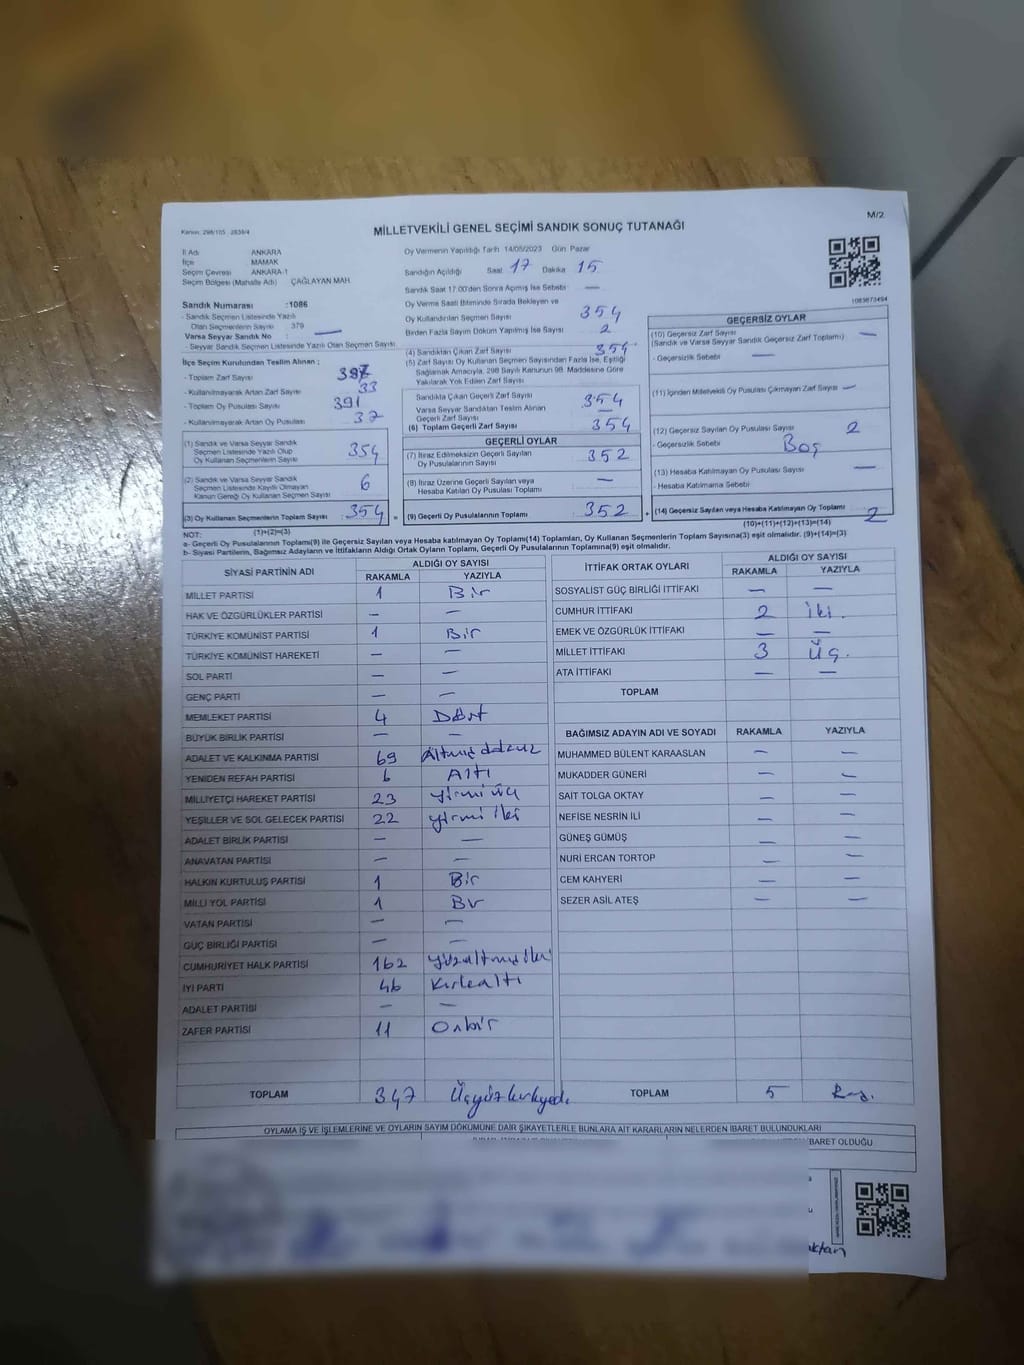 M/2
Kanun: 298/105 , 2839/4
MİLLETVEKİLİ GENEL SEÇİMİ SANDIK SONUÇ TUTANAĞI
İl Adı ANKARA
İlçe MAMAK
Seçim Çevresi ANKARA-1
Seçim Bölgesi (Mahalle Adı) ÇAĞLAYAN MAH.
Sandık Numarası :1086
- Sandık Seçmen Listesinde Yazılı
Olan Seçmenlerin Sayısı : 379
Varsa Seyyar Sandık No : —
- Seyyar Sandık Seçmen Listesinde Yazılı Olan Seçmen Sayısı
İlçe Seçim Kurulundan Teslim Alınan ;
- Toplam Zarf Sayısı 387
- Kullanılmayarak Artan Zarf Sayısı 33
- Toplam Oy Pusulası Sayısı 391
- Kullanılmayarak Artan Oy Pusulası 37
(1) Sandık ve Varsa Seyyar Sandık
Seçmen Listesinde Yazılı Olup
Oy Kullanan Seçmenlerin Sayısı 354
(2) Sandık ve Varsa Seyyar Sandık
Seçmen Listesinde Kayıtlı Olmayan
Kanun Gereği Oy Kullanan Seçmen Sayısı 6
(3) Oy Kullanan Seçmenlerin Toplam Sayısı 354 =
(1)+(2)=(3)
Oy Vermenin Yapıldığı Tarih 14/05/2023 Gün Pazar
Sandığın Açıldığı Saat 17 Dakika 15
Sandık Saat 17:00'den Sonra Açılmış İse Sebebi: —
Oy Verme Saati Bitiminde Sırada Bekleyen ve
Oy Kullandırılan Seçmen Sayısı 354
Birden Fazla Sayım Döküm Yapılmış İse Sayısı 2
(4) Sandıktan Çıkan Zarf Sayısı 354
(5) Zarf Sayısı Oy Kullanan Seçmen Sayısından Fazla İse, Eşitliği
Sağlamak Amacıyla, 298 Sayılı Kanunun 98. Maddesine Göre
Yakılarak Yok Edilen Zarf Sayısı
Sandıkta Çıkan Geçerli Zarf Sayısı 354
Varsa Seyyar Sandıktan Teslim Alınan
Geçerli Zarf Sayısı —
(6) Toplam Geçerli Zarf Sayısı 354
GEÇERLİ OYLAR
(7) İtiraz Edilmeksizin Geçerli Sayılan
Oy Pusulalarının Sayısı 352
(8) İtiraz Üzerine Geçerli Sayılan veya
Hesaba Katılan Oy Pusulası Toplamı —
(9) Geçerli Oy Pusulalarının Toplamı 352 +
1083673494
GEÇERSİZ OYLAR
(10) Geçersiz Zarf Sayısı —
(Sandık ve Varsa Seyyar Sandık Geçersiz Zarf Toplamı)
- Geçersizlik Sebebi —
(11) İçinden Milletvekili Oy Pusulası Çıkmayan Zarf Sayısı —
(12) Geçersiz Sayılan Oy Pusulası Sayısı 2
- Geçersizlik Sebebi Boş
(13) Hesaba Katılmayan Oy Pusulası Sayısı —
- Hesaba Katılmama Sebebi
(14) Geçersiz Sayılan veya Hesaba Katılmayan Oy Toplamı 2
(10)+(11)+(12)+(13)=(14)
NOT:
a- Geçerli Oy Pusulalarının Toplamı(9) ile Geçersiz Sayılan veya Hesaba katılmayan Oy Toplamı(14) Toplamları, Oy Kullanan Seçmenlerin Toplam Sayısına(3) eşit olmalıdır. (9)+(14)=(3)
b- Siyasi Partilerin, Bağımsız Adayların ve İttifakların Aldığı Ortak Oyların Toplamı, Geçerli Oy Pusulalarının Toplamına(9) eşit olmalıdır.
SİYASİ PARTİNİN ADI ALDIĞI OY SAYISI
RAKAMLA YAZIYLA
MİLLET PARTİSİ 1 Bir
HAK VE ÖZGÜRLÜKLER PARTİSİ — —
TÜRKİYE KOMÜNİST PARTİSİ 1 Bir
TÜRKİYE KOMÜNİST HAREKETİ — —
SOL PARTİ — —
GENÇ PARTİ — —
MEMLEKET PARTİSİ 4 Dört
BÜYÜK BİRLİK PARTİSİ — —
ADALET VE KALKINMA PARTİSİ 69 Altmış dokuz
YENİDEN REFAH PARTİSİ 6 Altı
MİLLİYETÇİ HAREKET PARTİSİ 23 yirmi üç
YEŞİLLER VE SOL GELECEK PARTİSİ 22 yirmi iki
ADALET BİRLİK PARTİSİ — —
ANAVATAN PARTİSİ — —
HALKIN KURTULUŞ PARTİSİ 1 Bir
MİLLİ YOL PARTİSİ 1 Bir
VATAN PARTİSİ — —
GÜÇ BİRLİĞİ PARTİSİ — —
CUMHURİYET HALK PARTİSİ 162 yüzaltmışiki
İYİ PARTİ 46 Kırkaltı
ADALET PARTİSİ — —
ZAFER PARTİSİ 11 Onbir
TOPLAM 347 Üçyüzkırkyedi
İTTİFAK ORTAK OYLARI ALDIĞI OY SAYISI
RAKAMLA YAZIYLA
SOSYALİST GÜÇ BİRLİĞİ İTTİFAKI — —
CUMHUR İTTİFAKI 2 iki.
EMEK VE ÖZGÜRLÜK İTTİFAKI — —
MİLLET İTTİFAKI 3 Üç.
ATA İTTİFAKI — —
TOPLAM
BAĞIMSIZ ADAYIN ADI VE SOYADI RAKAMLA YAZIYLA
MUHAMMED BÜLENT KARAASLAN — —
MUKADDER GÜNERİ — —
SAİT TOLGA OKTAY — —
NEFİSE NESRİN İLİ — —
GÜNEŞ GÜMÜŞ — —
NURİ ERCAN TORTOP — —
CEM KAHYERİ — —
SEZER ASİL ATEŞ — —
TOPLAM 5
OYLAMA İŞ VE İŞLEMLERİNE VE OYLARIN SAYIM DÖKÜMÜNE DAİR ŞİKAYETLERLE BUNLARA AİT KARARLARIN NELERDEN İBARET BULUNDUKLARI
İBARET OLDUĞU